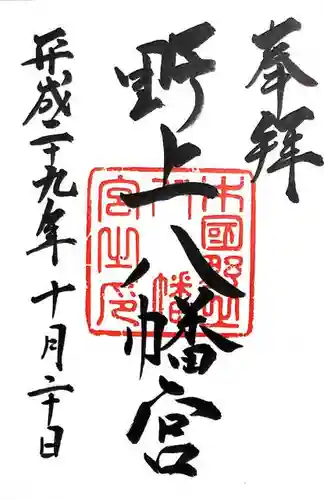 奉拝
野上八幡宮
平成二十九年十月二十日